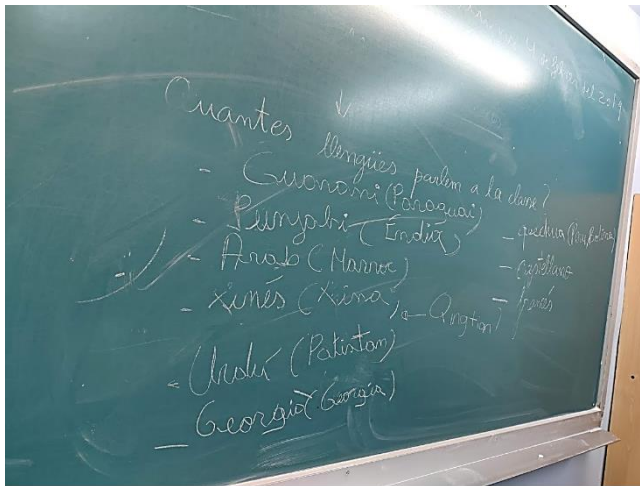 Quantes llengües parlem a la classe?
- Guaraní (Paraguai)
- Punjabi (Índia)
- Àrab (Marroc)
- Xinès (Xina) ← Qingtian?
- Urdú (Pakistan)
- Georgià (Georgia)
- quechua (Perú, Bolívia)
- Castellano
- francés